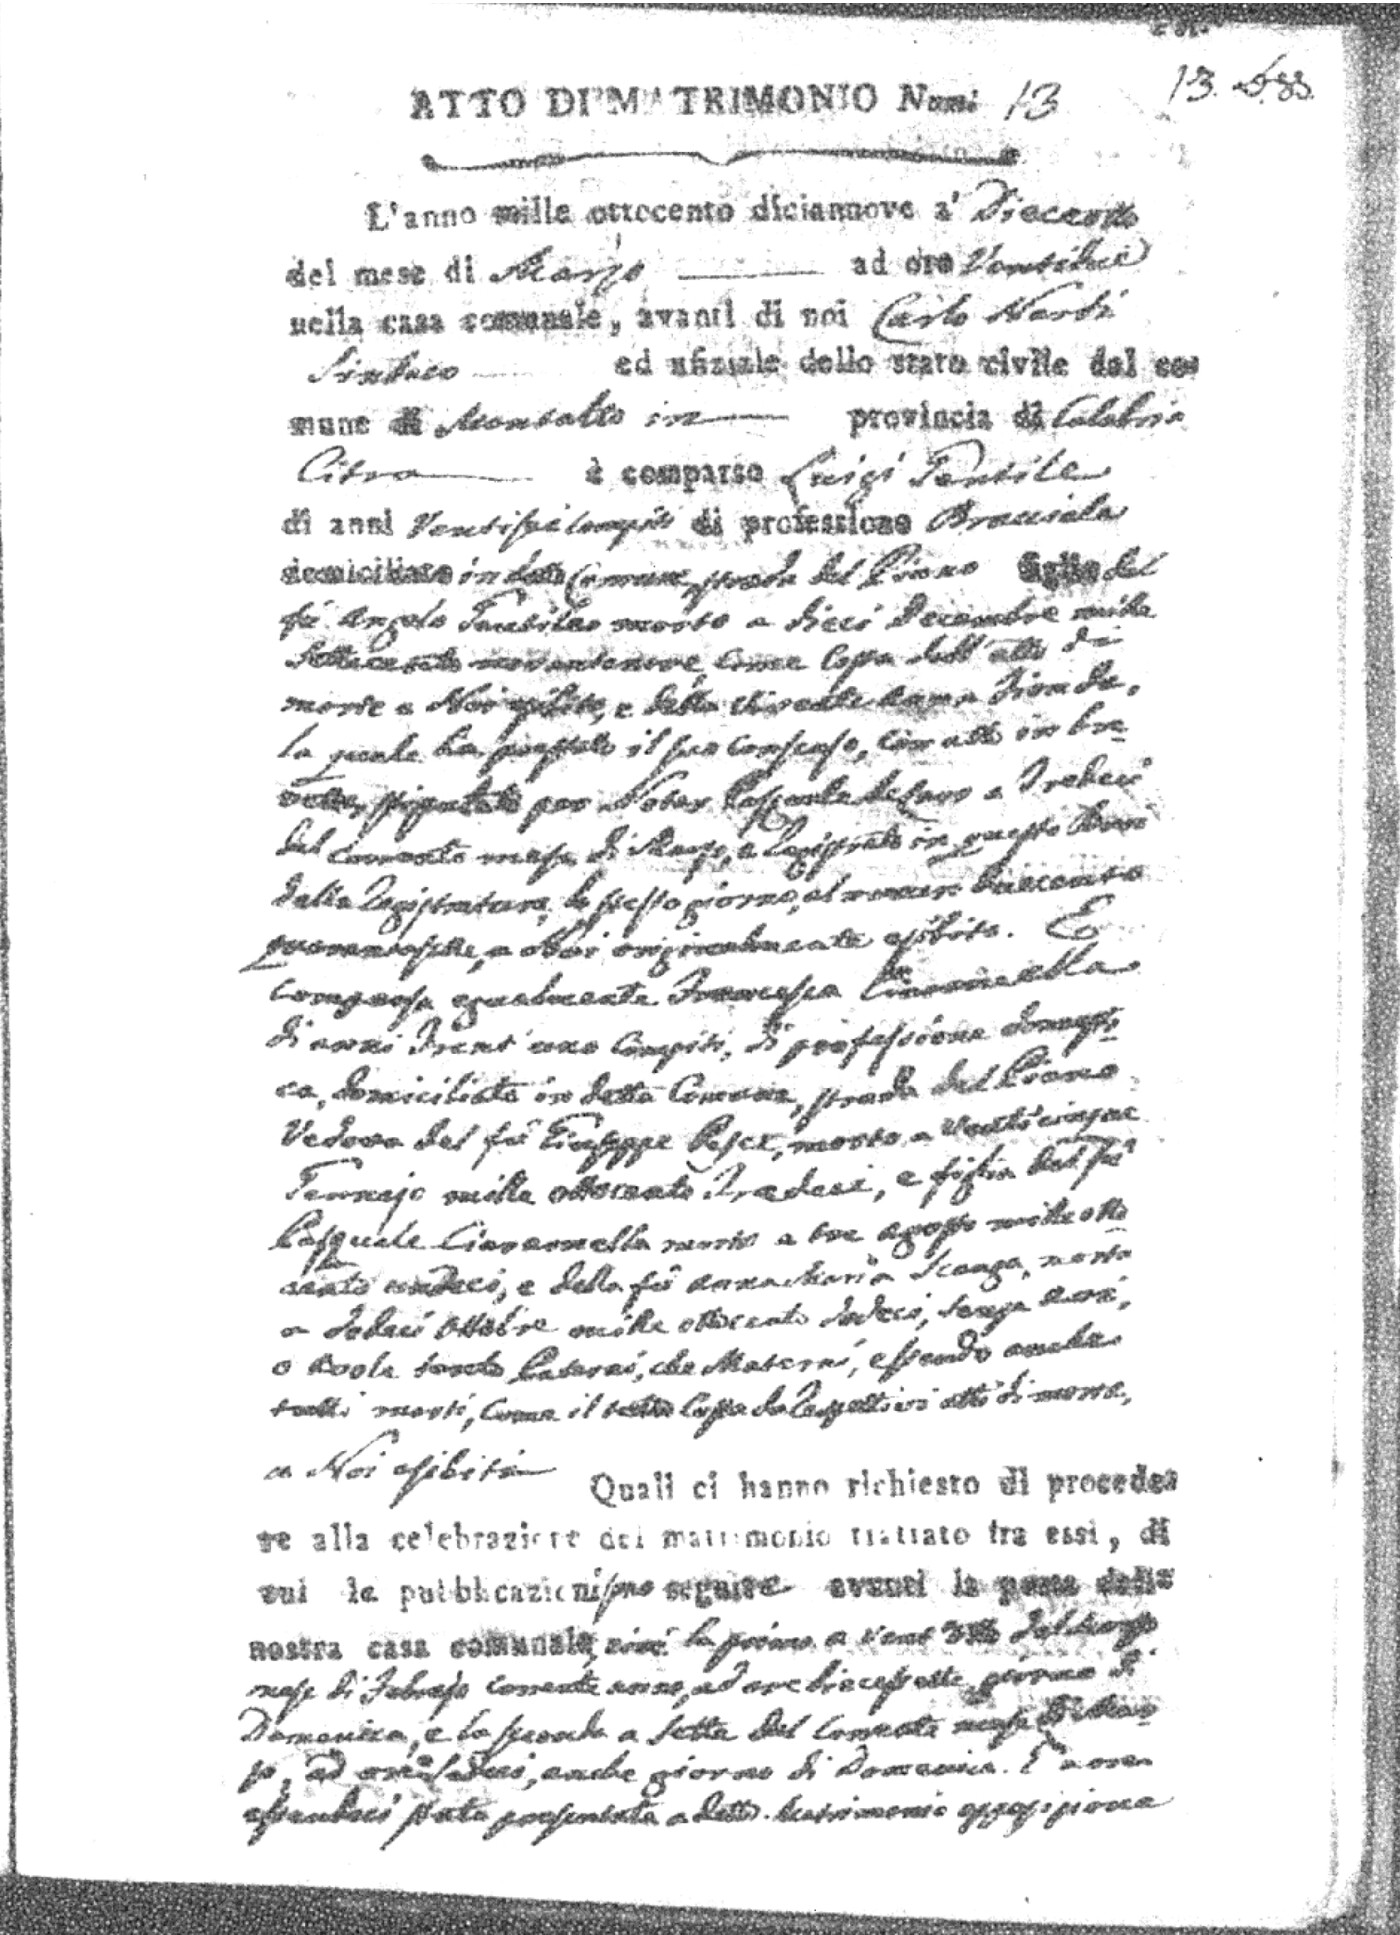 13
ATTO DI MATRIMONIO Num: 13
L'anno mille ottocento diciannove a' Dieceotto
del mese di Marzo ad ore Ventidue
nella casa comunale, avanti di noi Carlo Nardi
Sindaco ed ufiziale dello stato civile del co-
mune di Montalto in provincia di Calabria
Citra è comparso Luigi Gentile
di anni Ventisei compiti di professione Bracciale
domiciliato in detto Comune, strada del Piano figlio del
fù Angelo Gentile morto a dieci Decembre mille
settecento novantanove, come costa dall'atto di
morte a Noi esibito, e della vivente Anna
la quale ha prestato il suo consenso, con atto in bre-
vetto, stipulato per Notar Pasquale a Tredeci
del corrente mese di Marzo, e Registrato in questo
della Registratura, lo stesso giorno, al numero Duecento
quarantasette, a Noi originalmente esibito. E
comparsa egualmente Francesca Ciaramella
di anni Trent'uno compiti, di professione domesti-
ca, domiciliata in detto Comune, strada del Piano
Vedova del fù Giuseppe Pesce, morto a Venticinque
Gennajo mille ottocento Tredeci, e figlia del fù
Pasquale Ciaramella morto a tre agosto mille otto
cento undeci, e della fù Anna Maria Scanga, morta
a dodeci Ottobre mille ottocento dodeci, senza avi,
o avole tanto Paterni, che Materni, essendo anche
tutti morti, come il tutto costa da rispettivi atti di morte,
a Noi esibiti Quali ci hanno richiesto di procede-
re alla celebrazione del matrimonio trattato fra essi, di
cui le pubblicazioni sono seguite avanti la porta della
nostra casa comunale, cioè la prima a vent'otto del
mese di Febrajo corrente anno, ad ore diecessette, giorno di
Domenica, e la seconda a sette del corrente mese di Mar-
zo, ad ore sedeci, anche giorno di Domenica. E non
essendoci stata presentata a detto Matrimonio opposizione